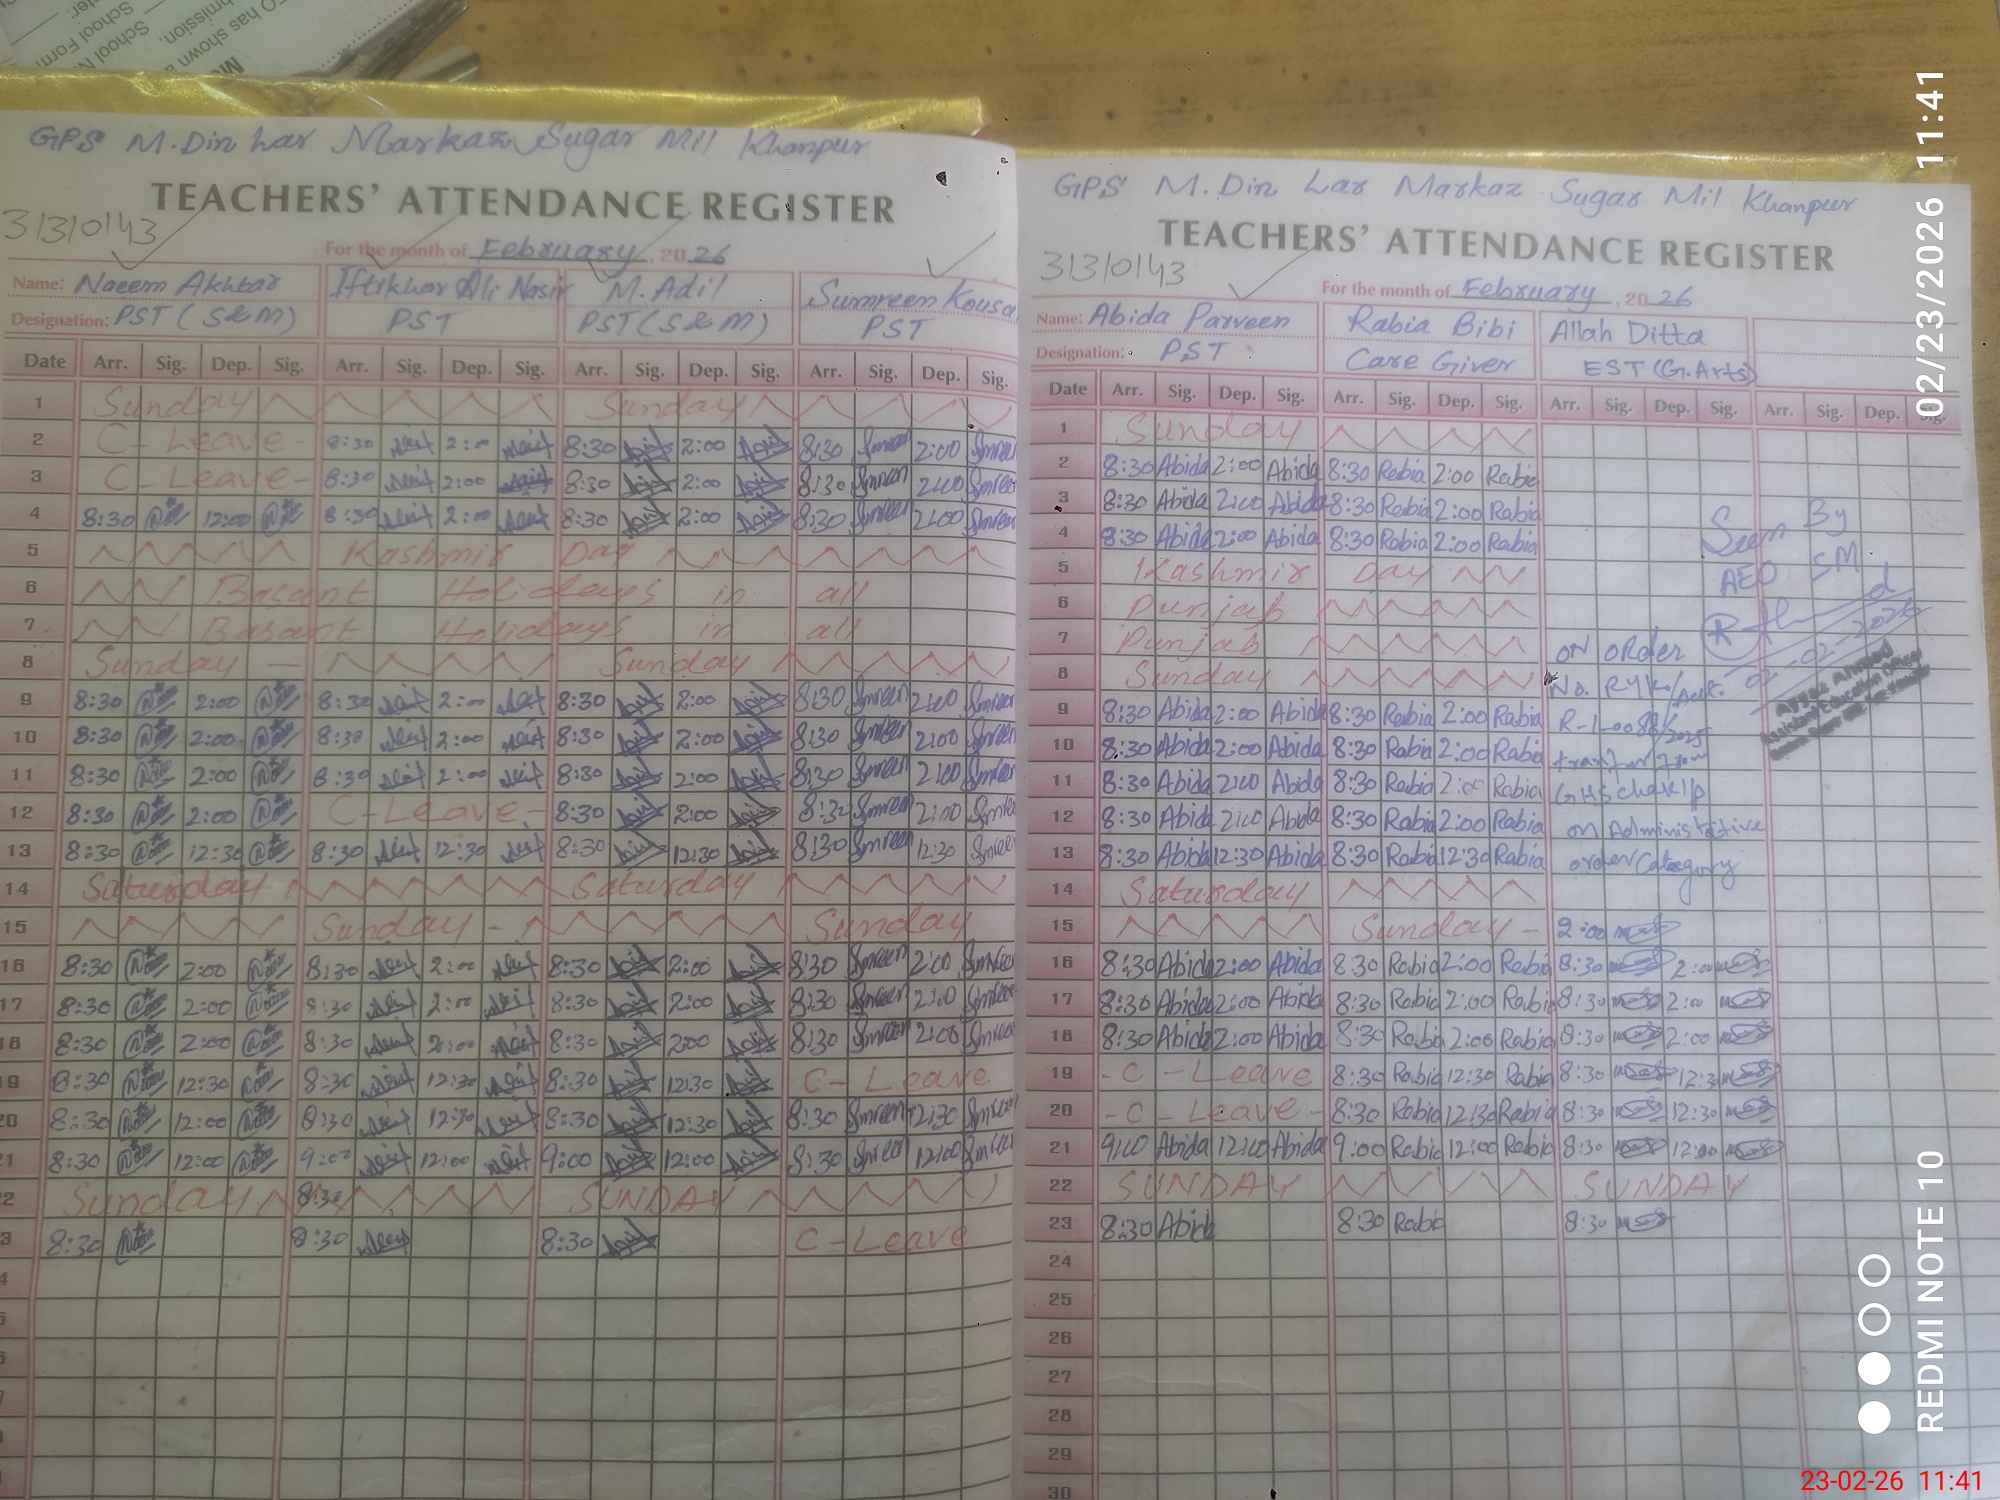 GPS M.Din Lar Markaz Sugar Mil Khanpur
TEACHERS' ATTENDANCE REGISTER
31310143
For the month of February, 2026
Name: Naeem Akhtar Iftikhar Ali Nasir M. Adil Sumreen Kousa
Designation: PST (S&M) PST PST (S&M) PST
Date Arr. Sig. Dep. Sig. Arr. Sig. Dep. Sig. Arr. Sig. Dep. Sig. Arr. Sig. Dep. Sig.
1 Sunday Sunday
2 C-Leave 8:30 2:00 8:30 2:00 8:30 2:00
3 C-Leave 8:30 2:00 8:30 2:00 8:30 2:00
4 8:30 12:00 8:30 2:00 8:30 2:00 8:30 2:00
5 Kashmir Day
6 Basant Holidays in all
7 Basant Holidays in all
8 Sunday Sunday
9 8:30 2:00 8:30 2:00 8:30 2:00 8:30 2:00
10 8:30 2:00 8:30 2:00 8:30 2:00 8:30 2:00
11 8:30 2:00 8:30 2:00 8:30 2:00 8:30 2:00
12 8:30 2:00 C-Leave 8:30 2:00 8:30 2:00
13 8:30 12:30 8:30 12:30 8:30 12:30 8:30 12:30
14 Saturday Saturday
15 Sunday Sunday
16 8:30 2:00 8:30 2:00 8:30 2:00 8:30 2:00
17 8:30 2:00 8:30 2:00 8:30 2:00 8:30 2:00
18 8:30 2:00 8:30 2:00 8:30 2:00 8:30 2:00
19 8:30 12:30 8:30 12:30 8:30 12:30 C-Leave
20 8:30 12:00 8:30 12:30 8:30 12:30 8:30 12:30
21 8:30 12:00 9:00 12:00 9:00 12:00 8:30 12:00
22 Sunday 8:30 SUNDAY
3 8:30 8:30 8:30 C-Leave
GPS M.Din Lar Markaz Sugar Mil Khanpur
TEACHERS' ATTENDANCE REGISTER
31310143
For the month of February, 2026
Name: Abida Parveen Rabia Bibi Allah Ditta
Designation: PST Care Giver EST (G.Arts)
Date Arr. Sig. Dep. Sig. Arr. Sig. Dep. Sig. Arr. Sig. Dep. Sig. Arr. Sig. Dep. Sig.
1 Sunday
2 8:30 Abida 2:00 Abida 8:30 Rabia 2:00 Rabia
3 8:30 Abida 2:00 Abida 8:30 Rabia 2:00 Rabia
4 8:30 Abida 2:00 Abida 8:30 Rabia 2:00 Rabia
5 Kashmir Day
6 Punjab
7 Punjab
8 Sunday
9 8:30 Abida 2:00 Abida 8:30 Rabia 2:00 Rabia
10 8:30 Abida 2:00 Abida 8:30 Rabia 2:00 Rabia
11 8:30 Abida 2:00 Abida 8:30 Rabia 2:00 Rabia
12 8:30 Abida 2:00 Abida 8:30 Rabia 2:00 Rabia
13 8:30 Abida 12:30 Abida 8:30 Rabia 12:30 Rabia
14 Saturday
15 Sunday 2:00
16 8:30 Abida 2:00 Abida 8:30 Rabia 2:00 Rabia 8:30 2:00
17 8:30 Abida 2:00 Abida 8:30 Rabia 2:00 Rabia 8:30 2:00
18 8:30 Abida 2:00 Abida 8:30 Rabia 2:00 Rabia 8:30 2:00
19 -C-Leave 8:30 Rabia 12:30 Rabia 8:30 12:3
20 -C-Leave- 8:30 Rabia 12:30 Rabia 8:30 12:30
21 9:00 Abida 12:00 Abida 9:00 Rabia 12:00 Rabia 8:30 12:00
22 SUNDAY SUNDAY
23 8:30 Abida 8:30 Rabia 8:30
24
25
26
27
28
29
30
Seen By
AEO SM
02-02-2026
Assistant Education Officer
ON Order
No. RYK/
transfer from
GHS
on Administrative
order Category
School Form
has shown
mission.
02/23/2026 11:41
REDMI NOTE 10
23-02-26 11:41